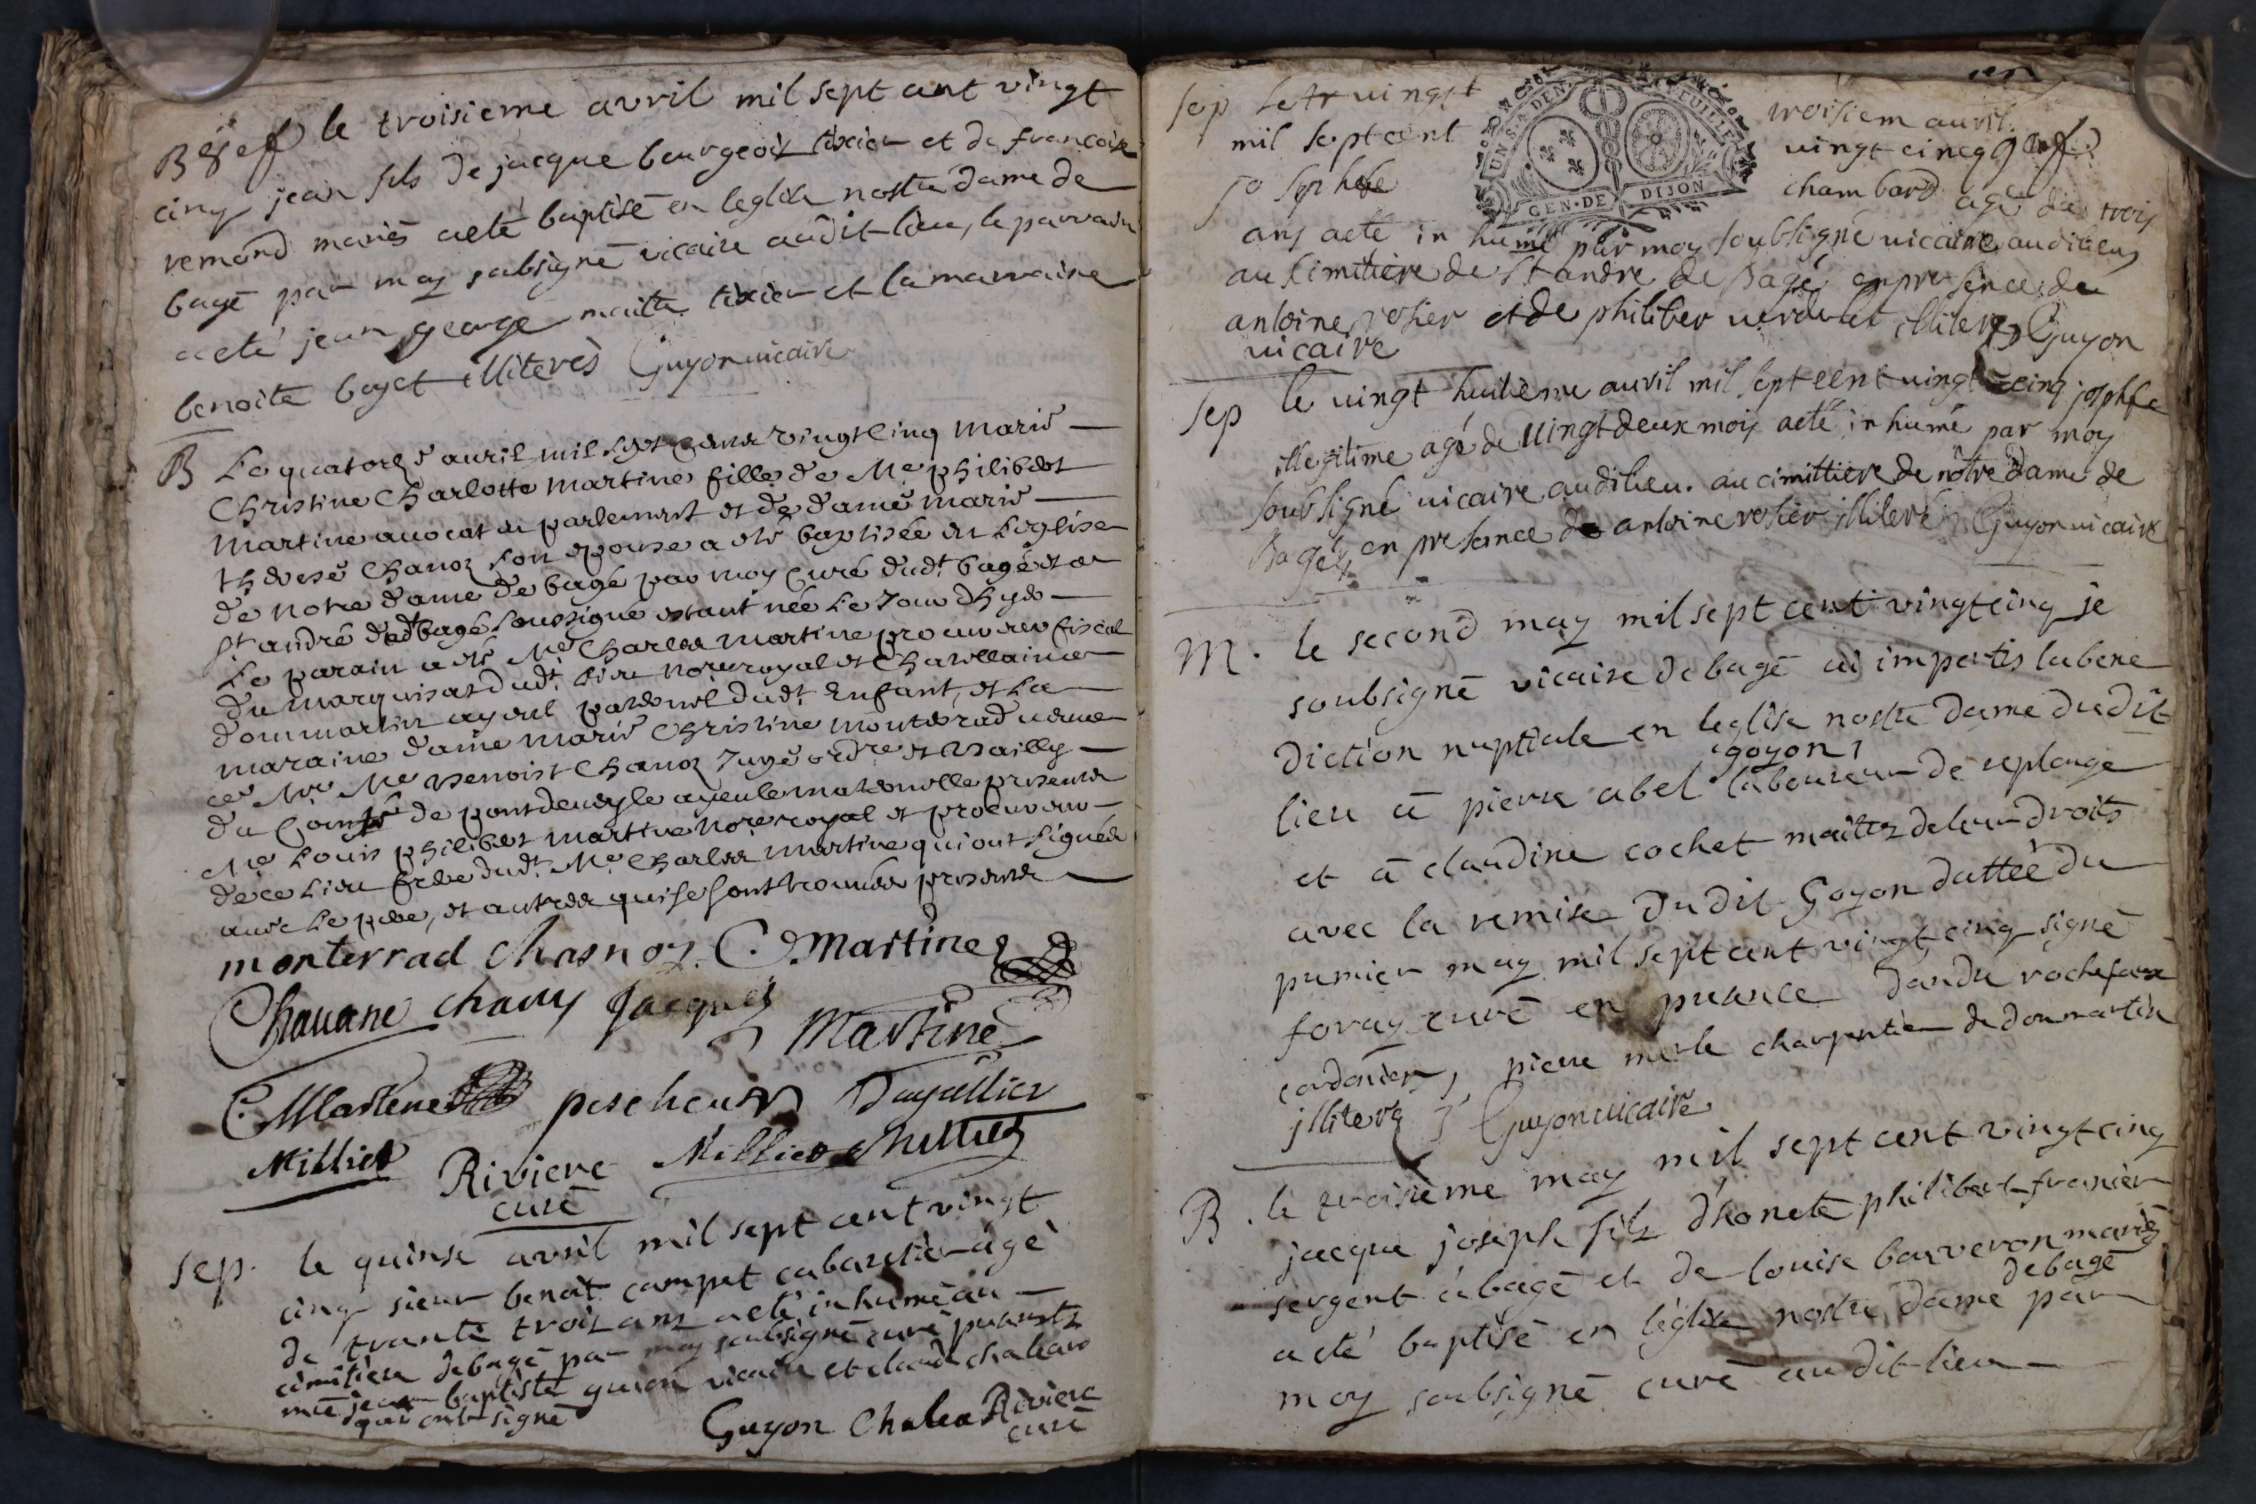 B le troisieme avril mil sept cent vingt
cinq jean fils de jacque bourgeois tixier et de francoise
remond mariés a eté baptisé en leglise nostre dame de
bagé par moy soubsigné vicaire audit lieu, le parrain
a eté jean george maitre tixier et la marraine
benoite boyet illiterés Guyon vicaire
B Le quatorze auril mil sept cents vingt cinq marie
Christine Charlotte martine fille de Me philibert
martine auocat au parlement et de dame marie
therese Chanoz son epouse a eté baptisée en Leglise
de notre dame de bagé par moy curé dudt bagé et de
st andré dudt bagé soussigné estant née Le Jour dhyer
Le parain a eté Me Charles martine procureur fiscal
du marquisat dudt lieu nore royal et Chatellain de
dommartin ayeul paternel dudt Enfant, et La
maraine dame marie Christine monterrad veuue
de Me Benoist Chanoz Juge ordre et Bailly
du Comté de pontdeueyle ayeule maternelle presents
Me Louis philibert martine nore royal et procureur
de ce Lieu frere dudt Me Charles martine qui ont signés
auec Le pere, et autres qui se sont trouués presents
monterrad chasnoz C. Martine
Chauane chauy Jacques
Martine
C. Martene pescheur Duyullier
Millier Riviere Millier Millier
curé
sep. le quinse avril mil sept cent vingt
cinq sieur benoit compet cabaretier agé
de trante trois ans a eté inhumé au
cimitiere de bagé par moy soubsigné curé presents
mre jean baptiste guion vicaire et claude chalear
qui ont signé
Guyon Chalea Riviere
curé
sep le vingt troisiem auvril
mil sept cent vingt cincq
josephe chambard agé de trois
ans a eté in humé par moy soubsigné uicaire audilieu
au simitiere de st andre de Bagé en presence de
antoine rosier et de philiber uerdelet illiteré Guyon
uicaire
GEN·DE DIJON
sep le uingt huitieme auvril mil sept cent uingt cinq josphfe
illegitime agé de uingt deux mois a eté in humé par moy
soubsigné uicaire audilieu. au cimittiere de nôtre dame de
Bagé en presence de antoine rosier illiteré Guyon uicaire
M. le second may mil sept cent vingt cinq je
soubsigné vicaire de bagé ai imparti la bene
diction nuptiale en leglise nostre dame dudit
goyon
lieu a pierre abel laboureur de replonge
et a claudine cochet maitres de leur droits
avec la remise dudit goyon dattée du
premier may mil sept cent vingt cinq signé
foray curé en presence dandre rochefaux
cordonier, pierre merle charpentier de dommartin
illiteré Guyon uicaire
B. le troisieme may mil sept cent vingt cinq
jacque joseph fils dhonete philibert franier
sergent a bagé et de louise bauveron mariés
de bagé
a eté baptisé en l'eglise nostre dame par
moy soubsigné curé audit lieu